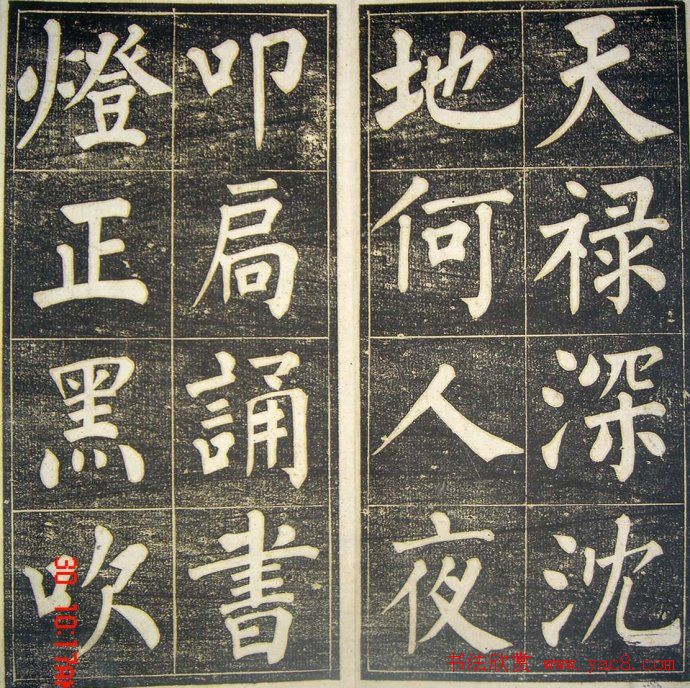 天禄深沈
地何人夜
叩扃誦書
燈正黑吹
书法欣赏 www.yac8.com